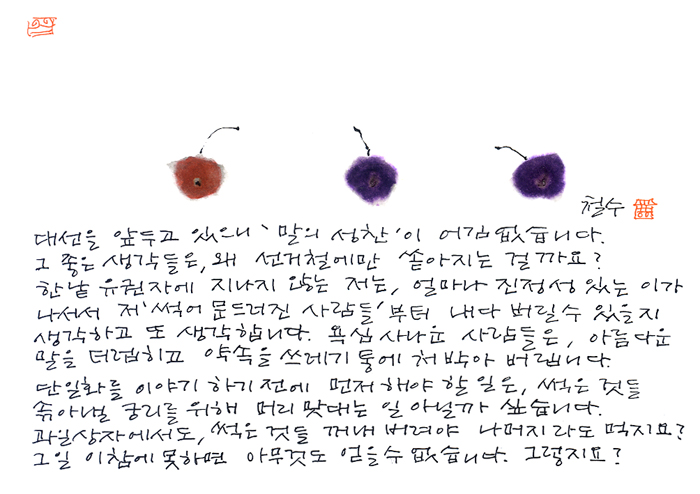 철수
대선을 앞두고 있으니 '말의 성찬'이 어김 없습니다.
그 좋은 생각들은, 왜 선거철에만 쏟아지는 걸까요?
한낱 유권자에 지나지 않는 저는, 얼마나 진정성 있는 이가
나서서 저 '썩어 문드러진 사람들'부터 내다 버릴수 있을지
생각하고 또 생각합니다. 욕심 사나운 사람들은, 아름다운
말을 더럽히고 약속을 쓰레기통에 처박아 버립니다.
단일화를 이야기 하기 전에 먼저 해야 할 일은, 썩은 것들
솎아낼 궁리를 위해 머리 맞대는 일 아닐까 싶습니다.
과일상자에서도, 썩은 것들 꺼내 버려야 나머지라도 먹지요?
그일 이참에 못하면 아무것도 얻을수 없습니다. 그렇지요?